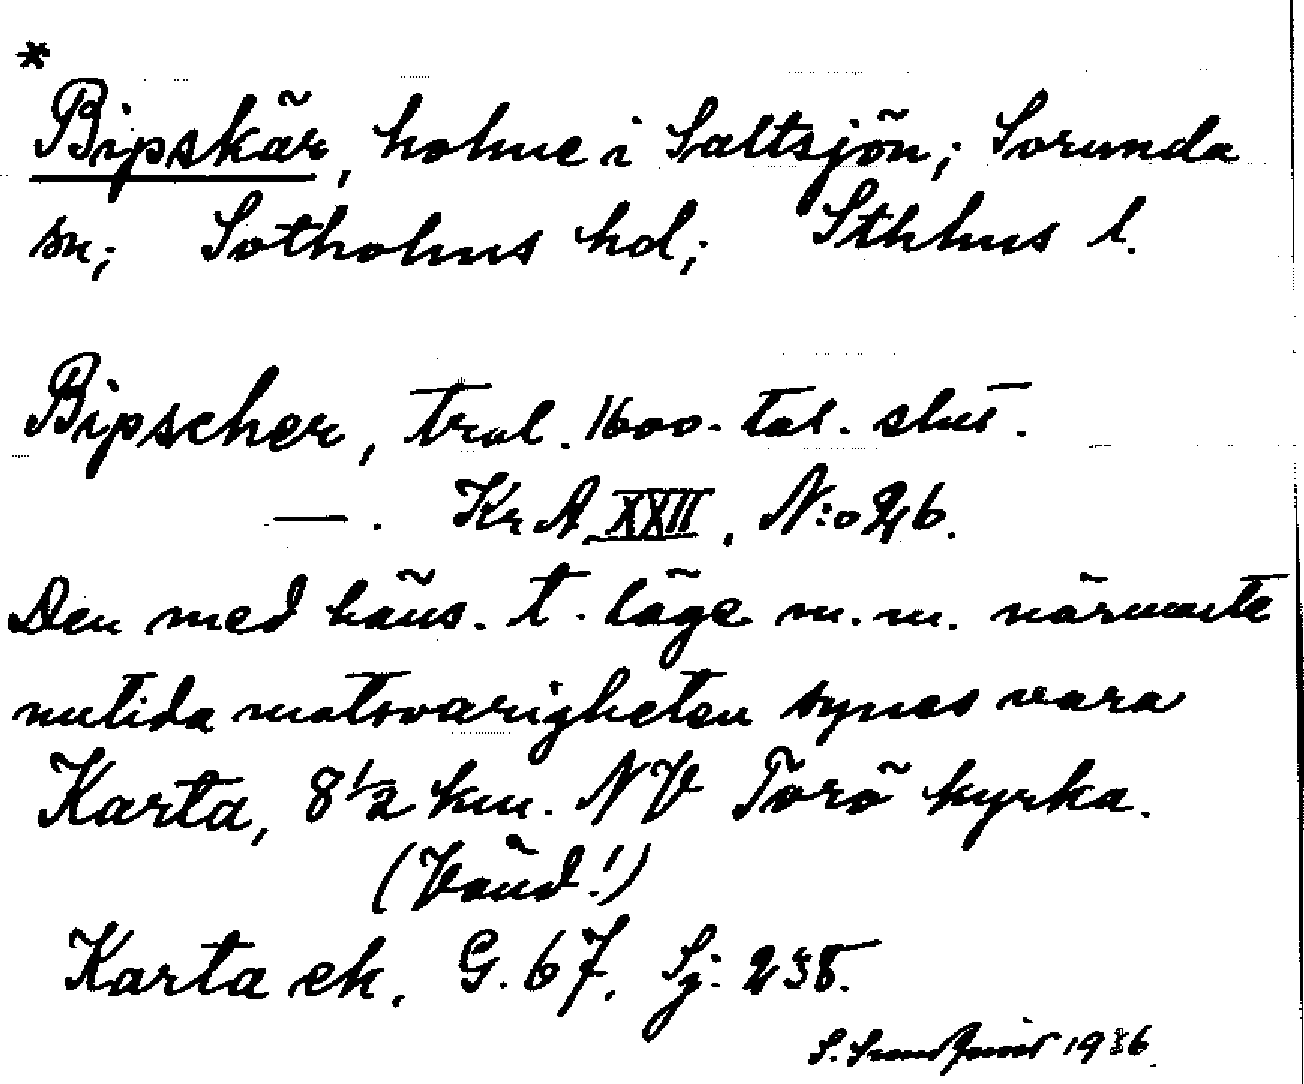 *
Bipskär, holme i Saltsjön; Sorunda
sn; Sotholms hd; Sthlms l.
Bipscher, trol. 1600-tal. slut.
—. KrA XXII, N:o 26.
Den med häns. t. läge m.m. närmaste
nutida motsvarigheten synes vara
Karta, 8 1/2 km. NV Torö kyrka.
(Vänd!)
Karta ek. G. 67. Sj: 235.
S. 1936